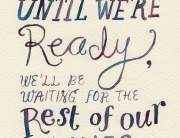 UNTIL WE'RE
Ready,
WE'LL BE
WAITING FOR THE
Rest of our